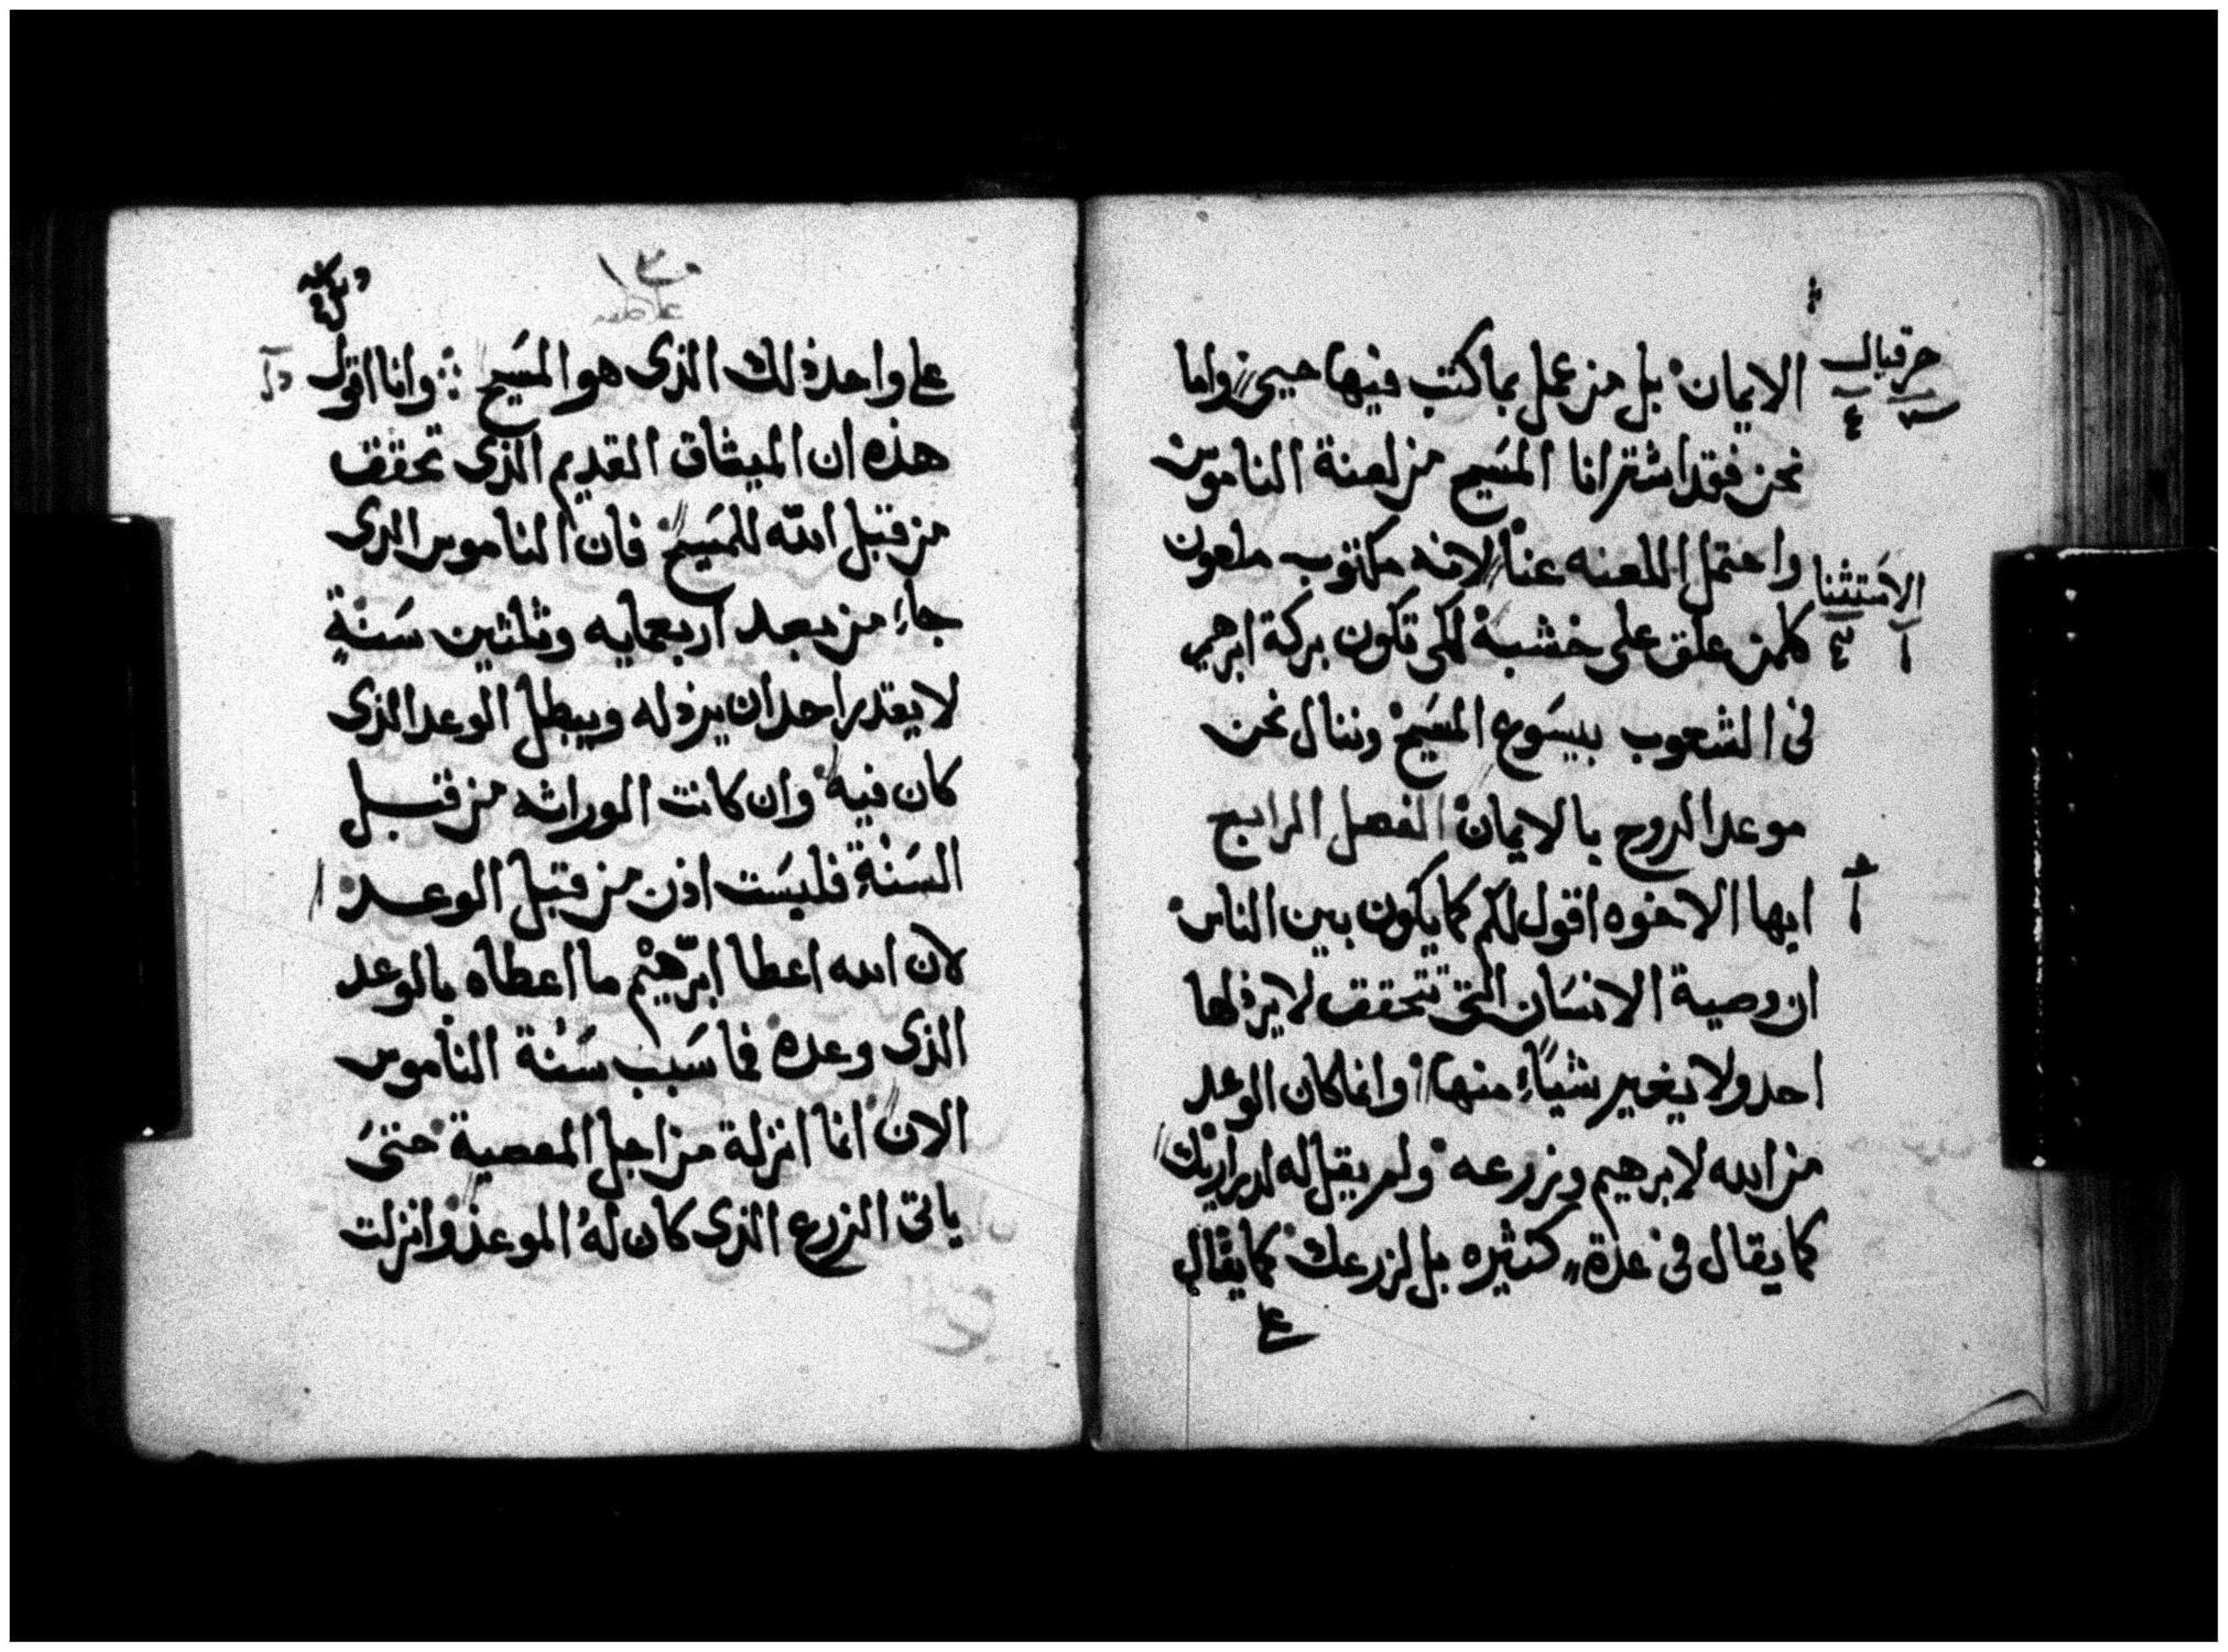 حزقيال
الايمان بل من عمل بما كتب فيها حيى واما
نحن فقد اشترانا المسيح من لعنة الناموس
واحتمل اللعنه عنا لانه مكتوب ملعون
الاستثنا
كلمن علق على خشبة لكى تكون بركة ابرهيم
فى الشعوب بيسوع المسيح وننال نحن
موعد الروح بالايمان الفصل الرابع
ايها الاخوه اقول لكم كما يكون بين الناس
ان وصية الانسان التى تتحقق لا يرذلها
احد ولا يغير شياء منها وانما كان الوعد
من الله لابرهيم وزرعه ولم يقل له لدراريك
كما يقال فى عدة كثيره بل لزرعك كما يقال
على واحد ذلك الذى هو المسيح وانا اقول
هذه ان الميثاق القديم الذى تحقق
من قبل الله للمسيح فان الناموس الدى
جاء من بعد اربعمايه وثلثين سنة
لا يقدر احد ان يرذله ويبطل الوعد الذى
كان فيه وان كانت الوراثه من قبل
السنة فليست اذن من قبل الوعد
لان الله اعطا ابرهيم ما اعطاه بالوعد
الذى وعده فما سبب سنة الناموس
الان انما انزلة من اجل المعصية حتى
ياتى الزرع الذى كان له الموعد وانزلت